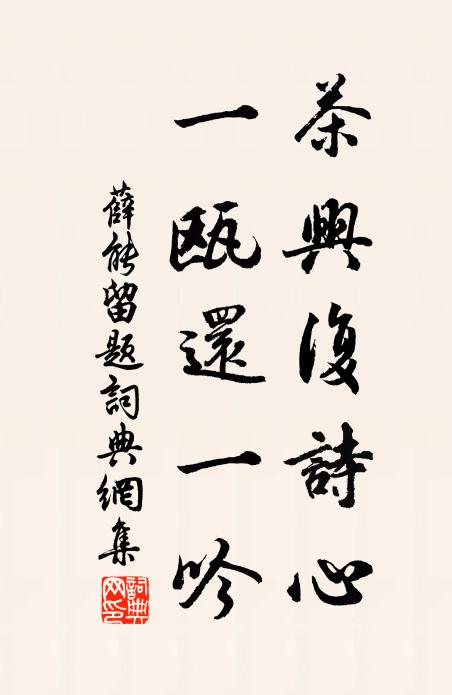 茶興復詩心
一甌還一吟
薛能留題詞典網集
詞典網印